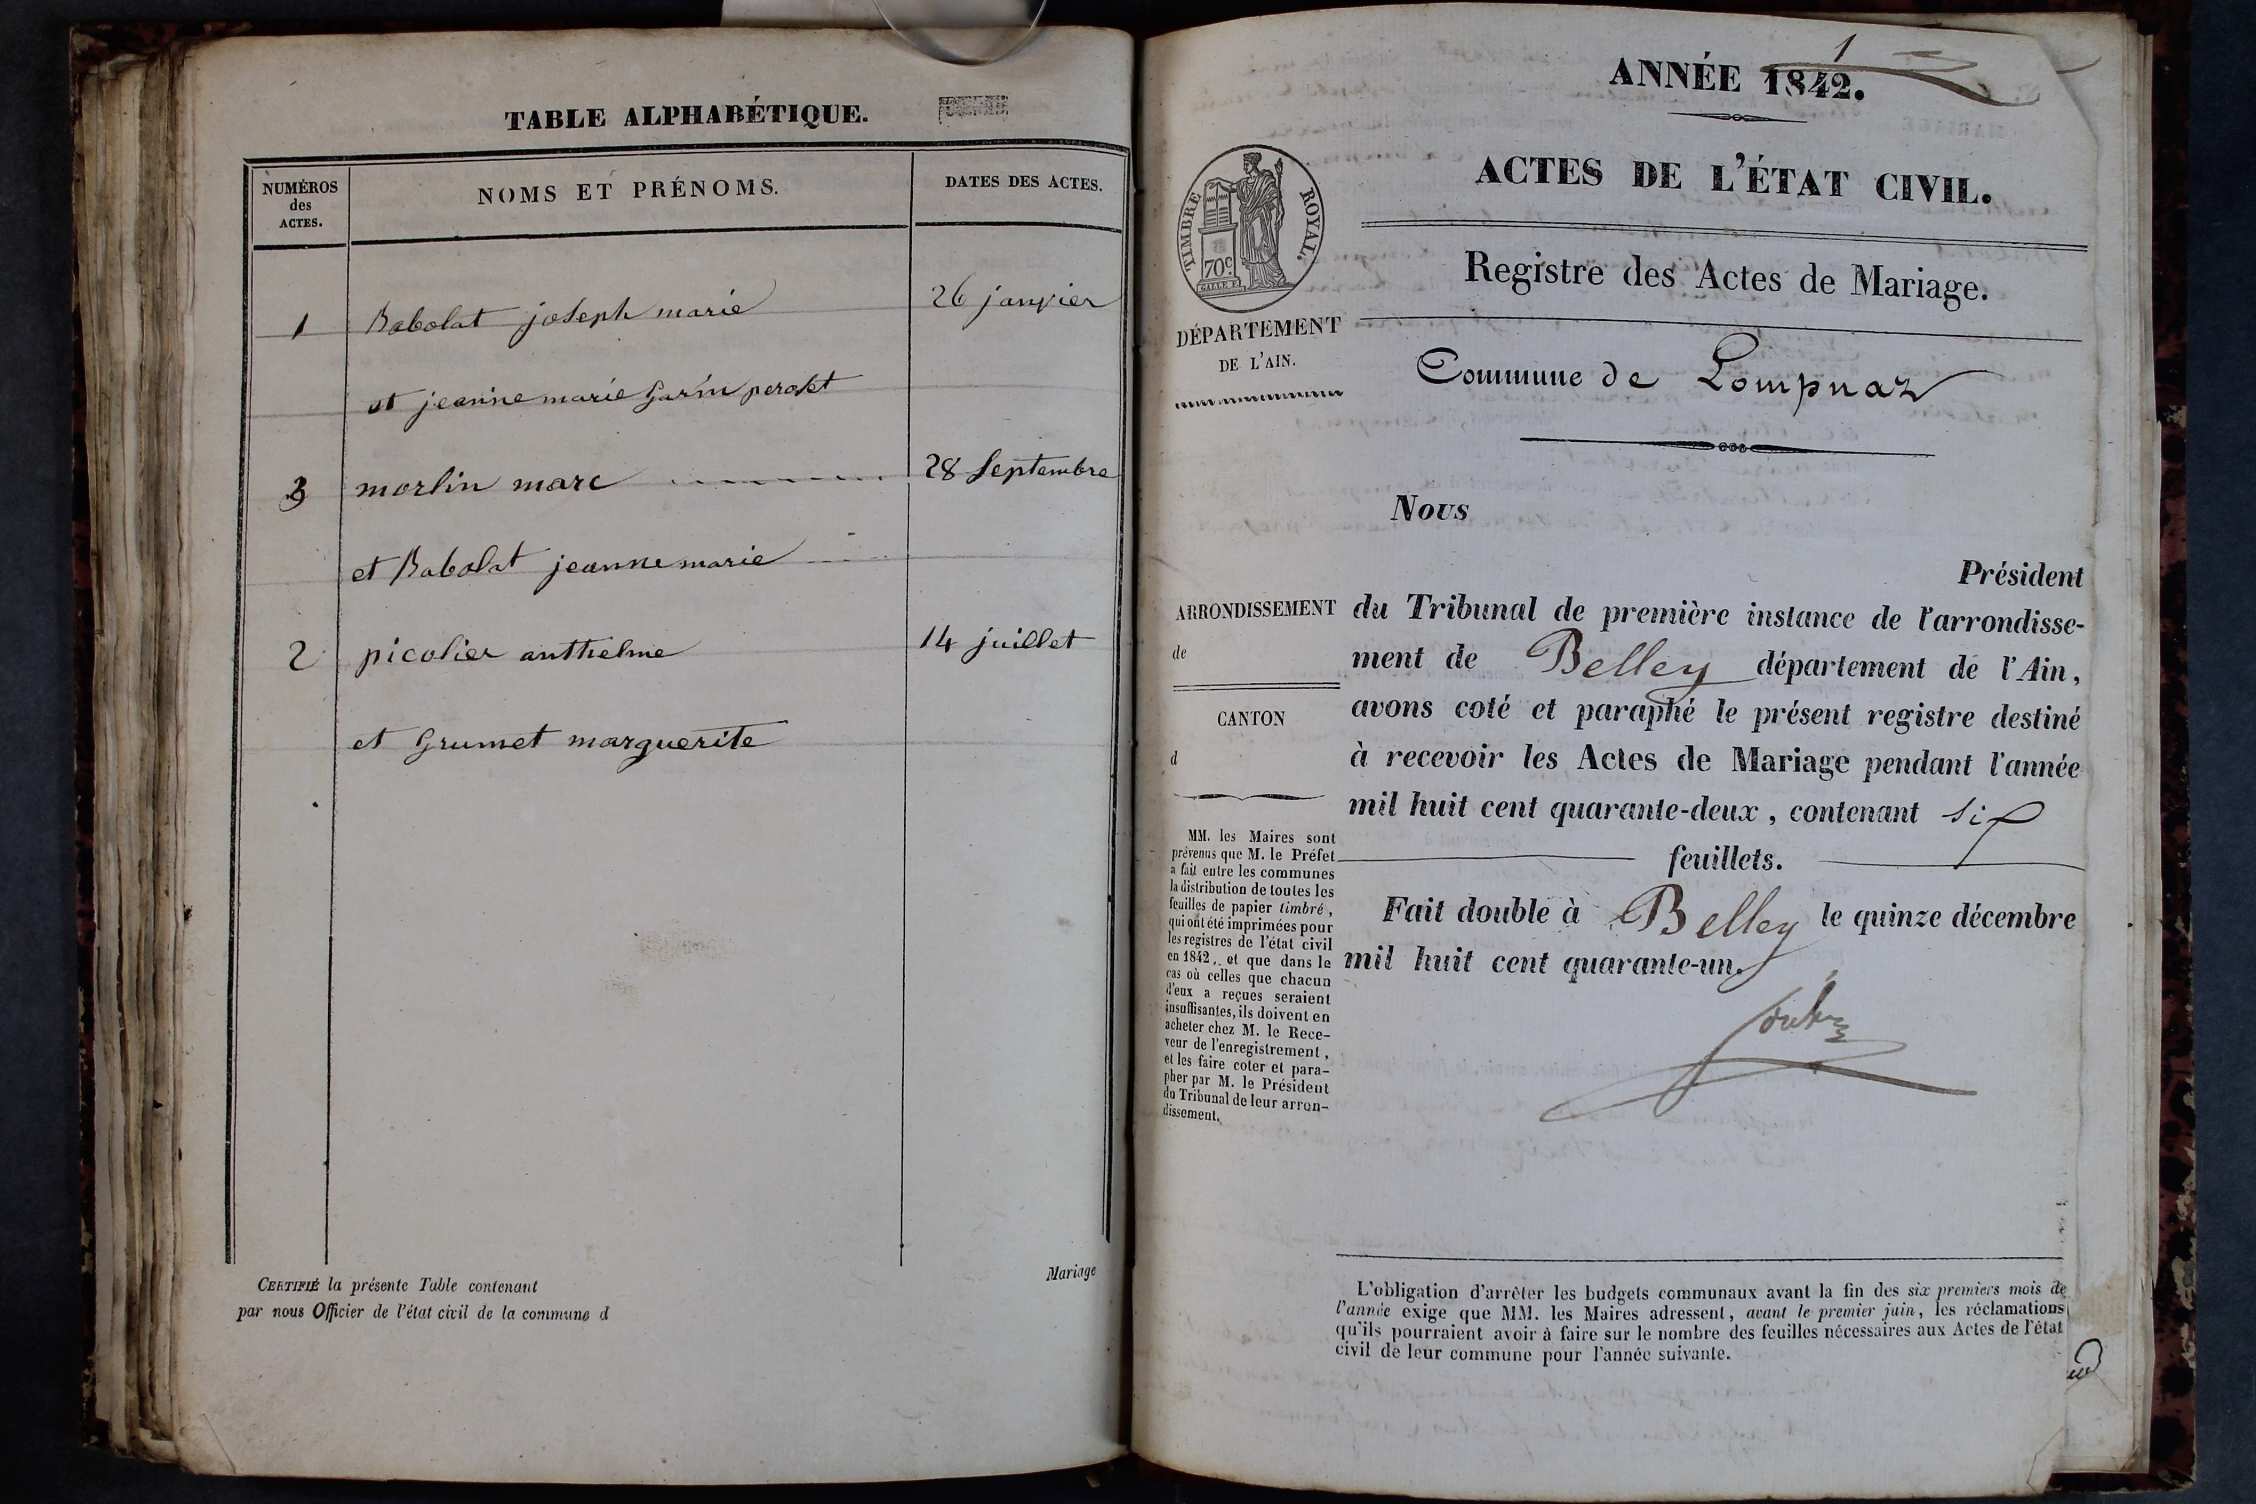 TABLE ALPHABÉTIQUE.
NUMÉROS
des
ACTES.
NOMS ET PRÉNOMS.
DATES DES ACTES.
1 Babolat joseph marie 26 janvier
et jeanne marie Garin
3 morlin marc 28 Septembre
et Babolat jeanne marie
2 picolier anthelme 14 juillet
et Grumet marguerite
CERTIFIÉ la présente Table contenant
par nous Officier de l'état civil de la commune d
Mariage
1
ANNÉE 1842.
ACTES DE L'ÉTAT CIVIL.
TIMBRE ROYAL.
70c
Registre des Actes de Mariage.
DÉPARTEMENT
DE L'AIN.
Commune de Lompnaz
Nous
Président
ARRONDISSEMENT
de
CANTON
d
du Tribunal de première instance de l'arrondisse-
ment de Belley département de l'Ain,
avons coté et paraphé le présent registre destiné
à recevoir les Actes de Mariage pendant l'année
mil huit cent quarante-deux, contenant six
feuillets.
Fait double à Belley le quinze décembre
mil huit cent quarante-un.
MM. les Maires sont
prévenus que M. le Préfet
a fait entre les communes
la distribution de toutes les
feuilles de papier timbré,
qui ont été imprimées pour
les registres de l'état civil
en 1842, et que dans le
cas où celles que chacun
d'eux a reçues seraient
insuffisantes, ils doivent en
acheter chez M. le Rece-
veur de l'enregistrement,
et les faire coter et para-
pher par M. le Président
du Tribunal de leur arron-
dissement.
L'obligation d'arrêter les budgets communaux avant la fin des six premiers mois de
l'année exige que MM. les Maires adressent, avant le premier juin, les réclamations
qu'ils pourraient avoir à faire sur le nombre des feuilles nécessaires aux Actes de l'état
civil de leur commune pour l'année suivante.